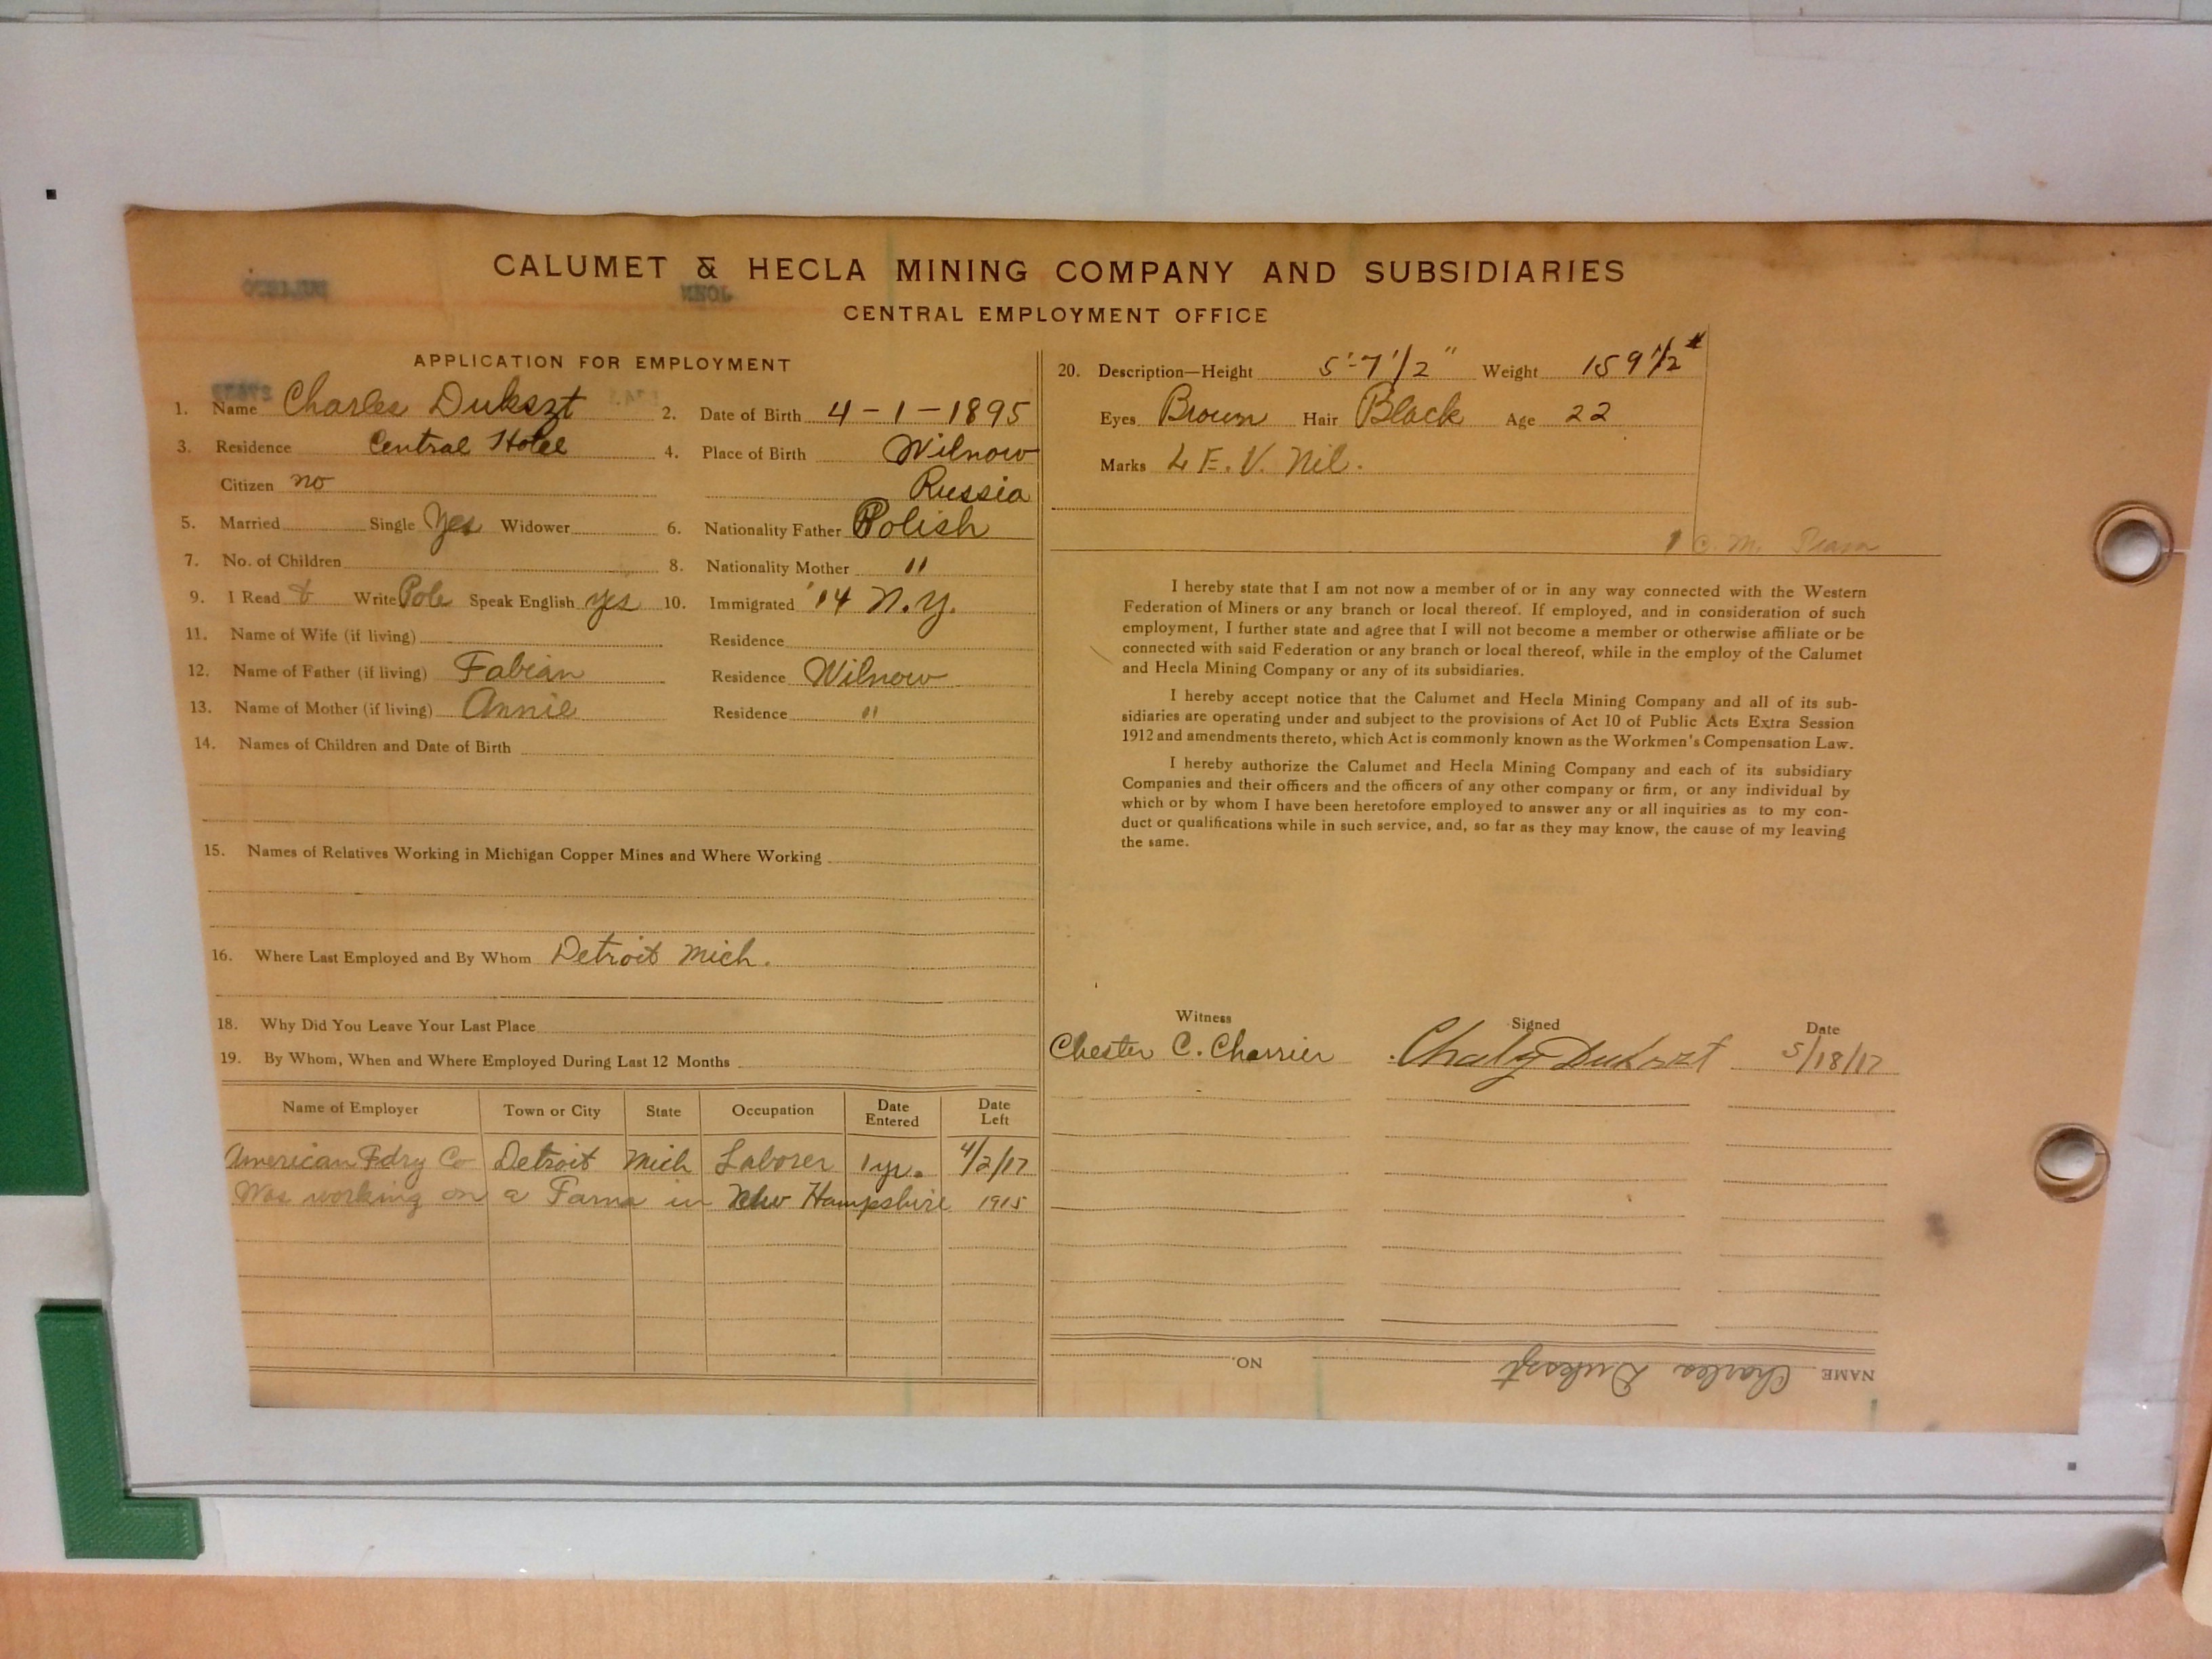 CALUMET & HECLA MINING COMPANY AND SUBSIDIARIES
CENTRAL EMPLOYMENT OFFICE
APPLICATION FOR EMPLOYMENT
1. Name Charles Dukszt 2. Date of Birth 4-1-1895
3. Residence Central Hotel 4. Place of Birth Wilnow
Citizen no Russia
5. Married Single Yes Widower 6. Nationality Father Polish
7. No. of Children 8. Nationality Mother "
9. I Read & Write Pole Speak English yes 10. Immigrated '14 N.Y.
11. Name of Wife (if living) Residence
12. Name of Father (if living) Fabian Residence Wilnow
13. Name of Mother (if living) Annie Residence "
14. Names of Children and Date of Birth
15. Names of Relatives Working in Michigan Copper Mines and Where Working
16. Where Last Employed and By Whom Detroit Mich.
18. Why Did You Leave Your Last Place
19. By Whom, When and Where Employed During Last 12 Months
Name of Employer Town or City State Occupation Date Entered Date Left
American Fdry Co Detroit Mich Laborer 1 yr. 4/2/17
Was working on a Farm in New Hampshire 1915
20. Description—Height 5'-7 1/2" Weight 159 1/2 #
Eyes Brown Hair Black Age 22
Marks L F. V. Nil.
C. M.
I hereby state that I am not now a member of or in any way connected with the Western
Federation of Miners or any branch or local thereof. If employed, and in consideration of such
employment, I further state and agree that I will not become a member or otherwise affiliate or be
connected with said Federation or any branch or local thereof, while in the employ of the Calumet
and Hecla Mining Company or any of its subsidiaries.
I hereby accept notice that the Calumet and Hecla Mining Company and all of its sub-
sidiaries are operating under and subject to the provisions of Act 10 of Public Acts Extra Session
1912 and amendments thereto, which Act is commonly known as the Workmen's Compensation Law.
I hereby authorize the Calumet and Hecla Mining Company and each of its subsidiary
Companies and their officers and the officers of any other company or firm, or any individual by
which or by whom I have been heretofore employed to answer any or all inquiries as to my con-
duct or qualifications while in such service, and, so far as they may know, the cause of my leaving
the same.
Witness Signed Date
Chester C. Charrier Dukszt 5/18/17
NAME Charles Dukszt NO.